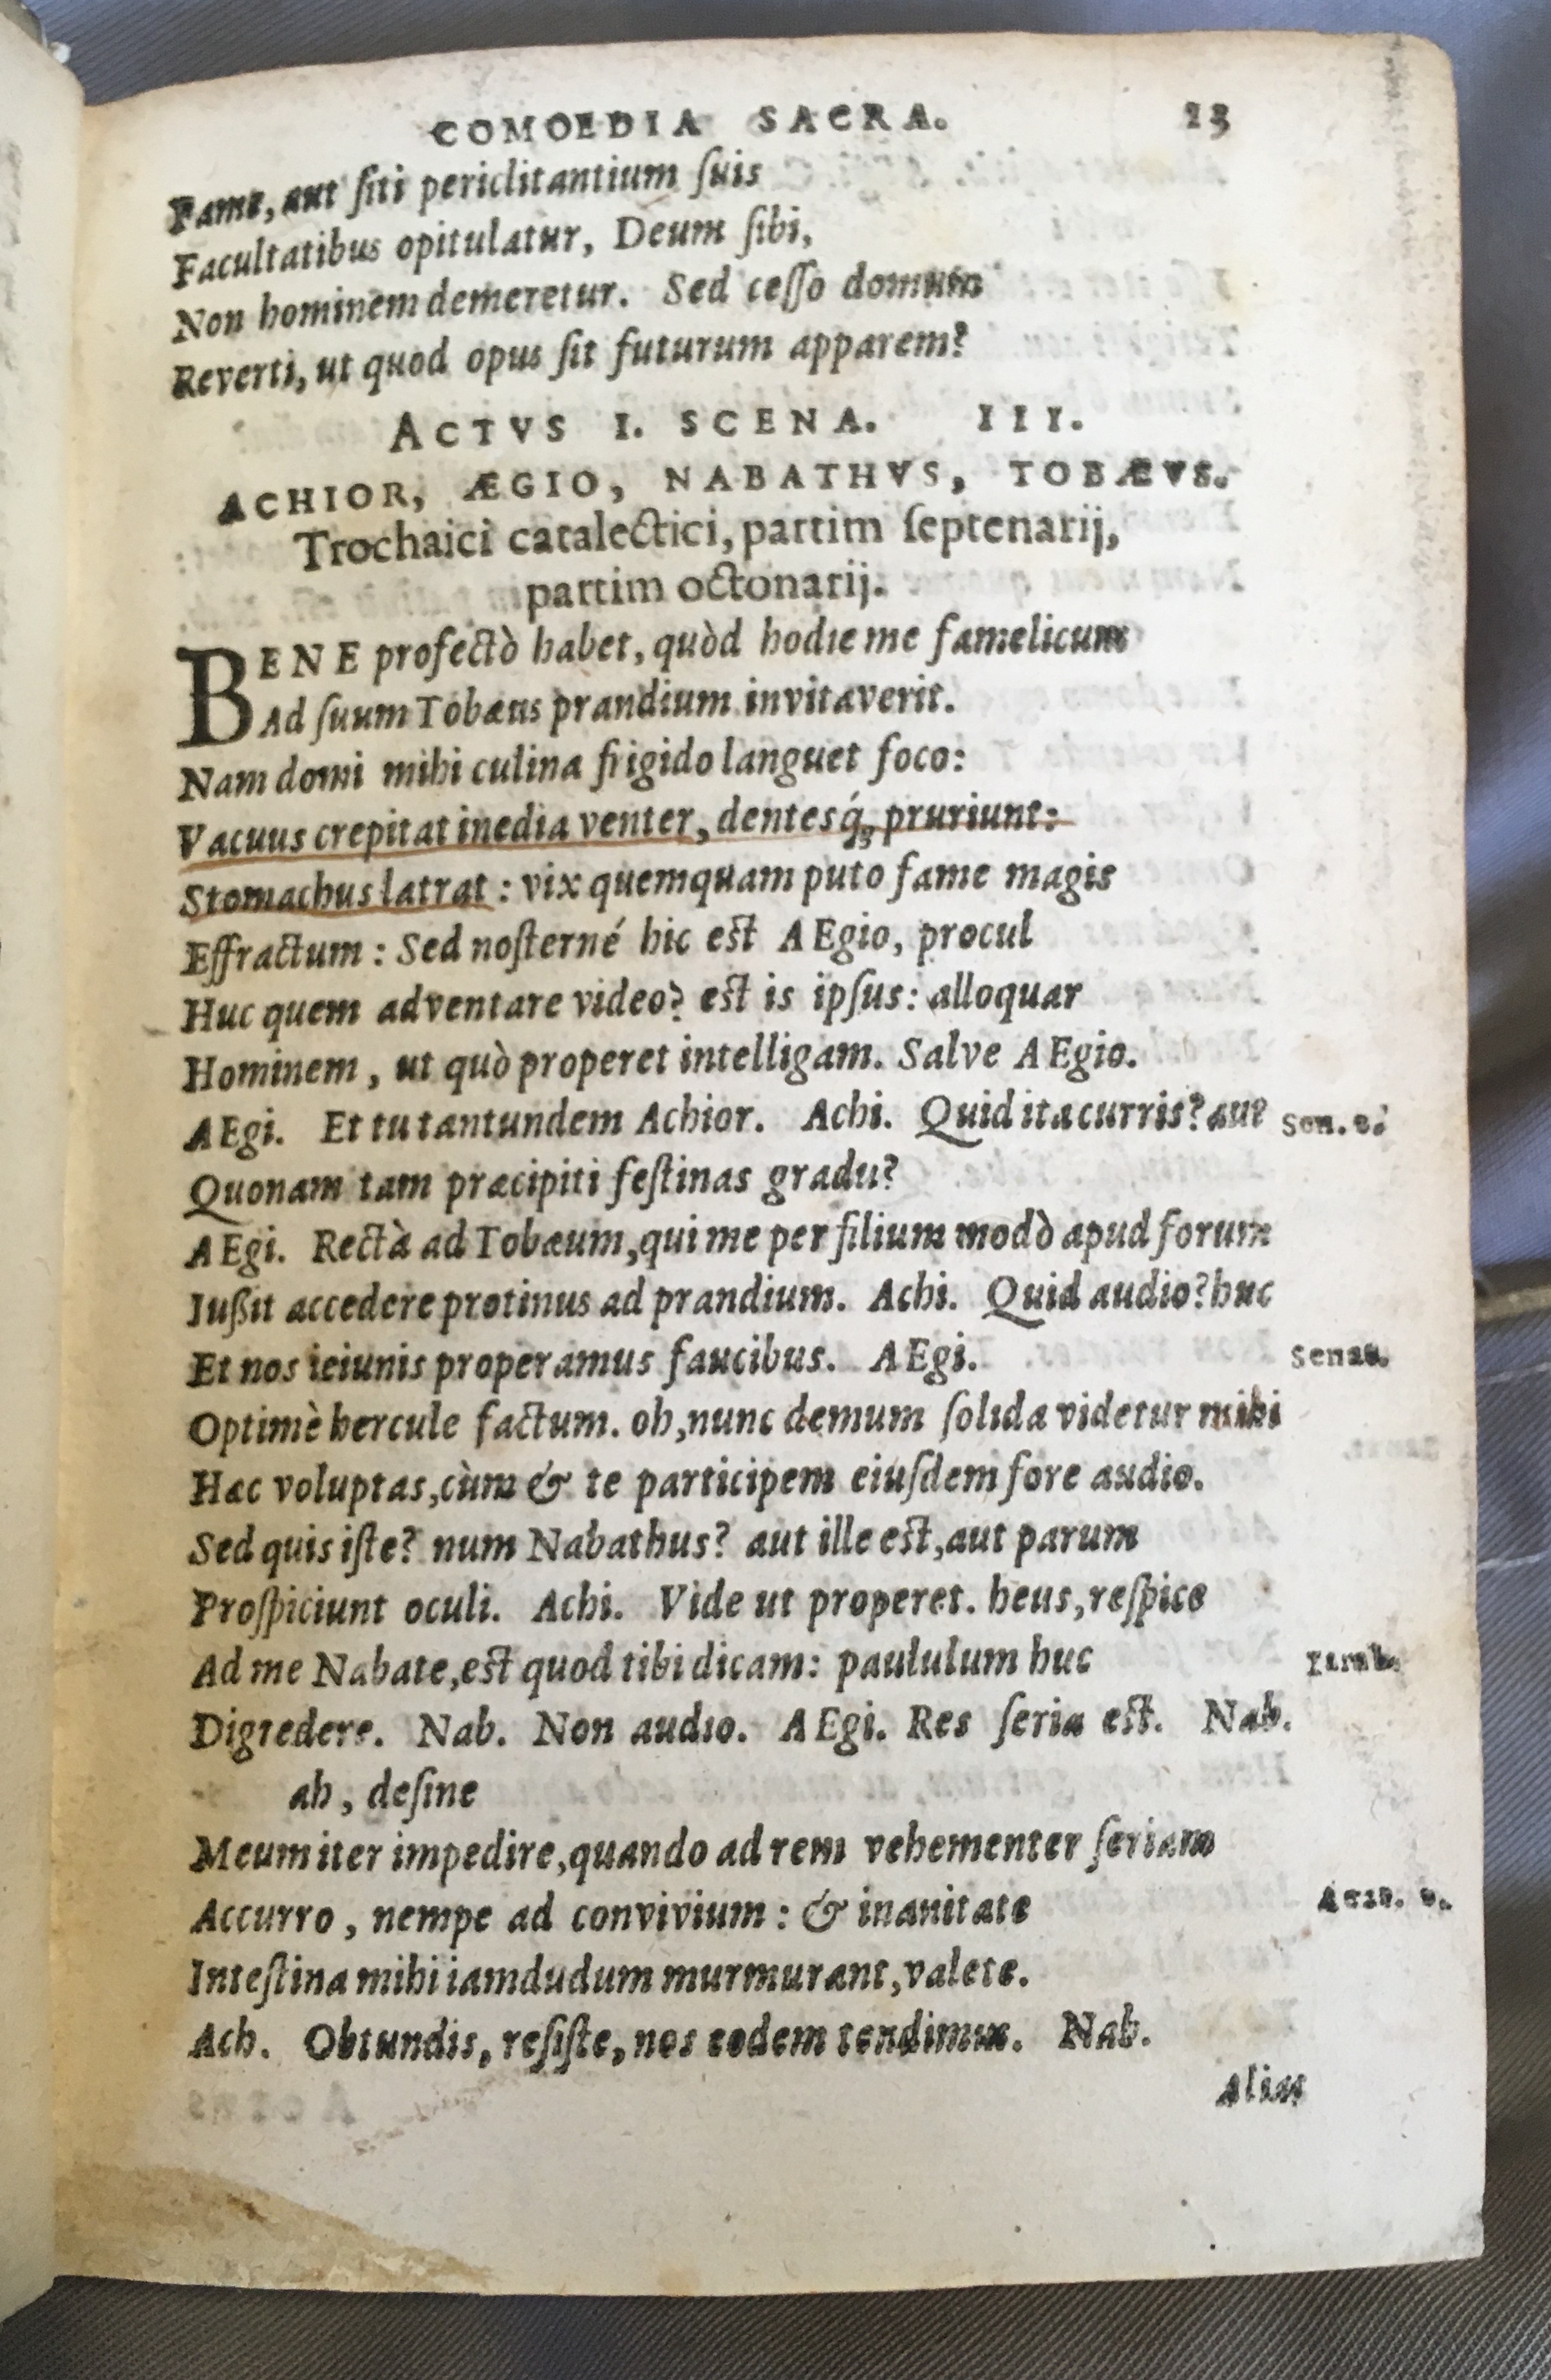 COMOEDIA SACRA. 23
Fame, aut ſiti periclitantium ſuis
Facultatibus opitulatur, Deum ſibi,
Non hominem demeretur. Sed ceſſo domum
Reverti, ut quod opus ſit futurum apparem?
ACTVS I. SCENA. III.
ACHIOR, ÆGIO, NABATHVS, TOBÆVS.
Trochaici catalectici, partim ſeptenarij,
partim octonarij.
BENE profectò habet, quòd hodie me famelicum
Ad ſuum Tobæus prandium invitaverit.
Nam domi mihi culina frigido languet foco:
Vacuus crepitat inedia venter, dentesq́; pruriunt:
Stomachus latrat : vix quemquam puto fame magis
Effractum : Sed noſterné hic est AEgio, procul
Huc quem adventare video? est is ipſus: alloquar
Hominem, ut quò properet intelligam. Salve AEgio.
AEgi. Et tu tantundem Achior. Achi. Quid ita curris? aut Sen.
Quonam tam præcipiti feſtinas gradu?
AEgi. Rectà ad Tobæum, qui me per filium modò apud forum
Iußit accedere protinus ad prandium. Achi. Quid audio? huc
Et nos ieiunis properamus faucibus. AEgi. Senar.
Optimè hercule factum. oh, nunc demum ſolida videtur mihi
Hæc voluptas, cùm & te participem eiuſdem fore audio.
Sed quis iſte? num Nabathus? aut ille est, aut parum
Proſpiciunt oculi. Achi. Vide ut properet. heus, reſpice
Ad me Nabate, est quod tibi dicam: paululum huc Iamb.
Digredere. Nab. Non audio. AEgi. Res ſeria est. Nab.
ah, deſine
Meum iter impedire, quando ad rem vehementer ſeriam
Accurro, nempe ad convivium : & inanitate
Inteſtina mihi iamdudum murmurant, valete.
Ach. Obtundis, reſiſte, nos eodem tendimus. Nab.
Alias